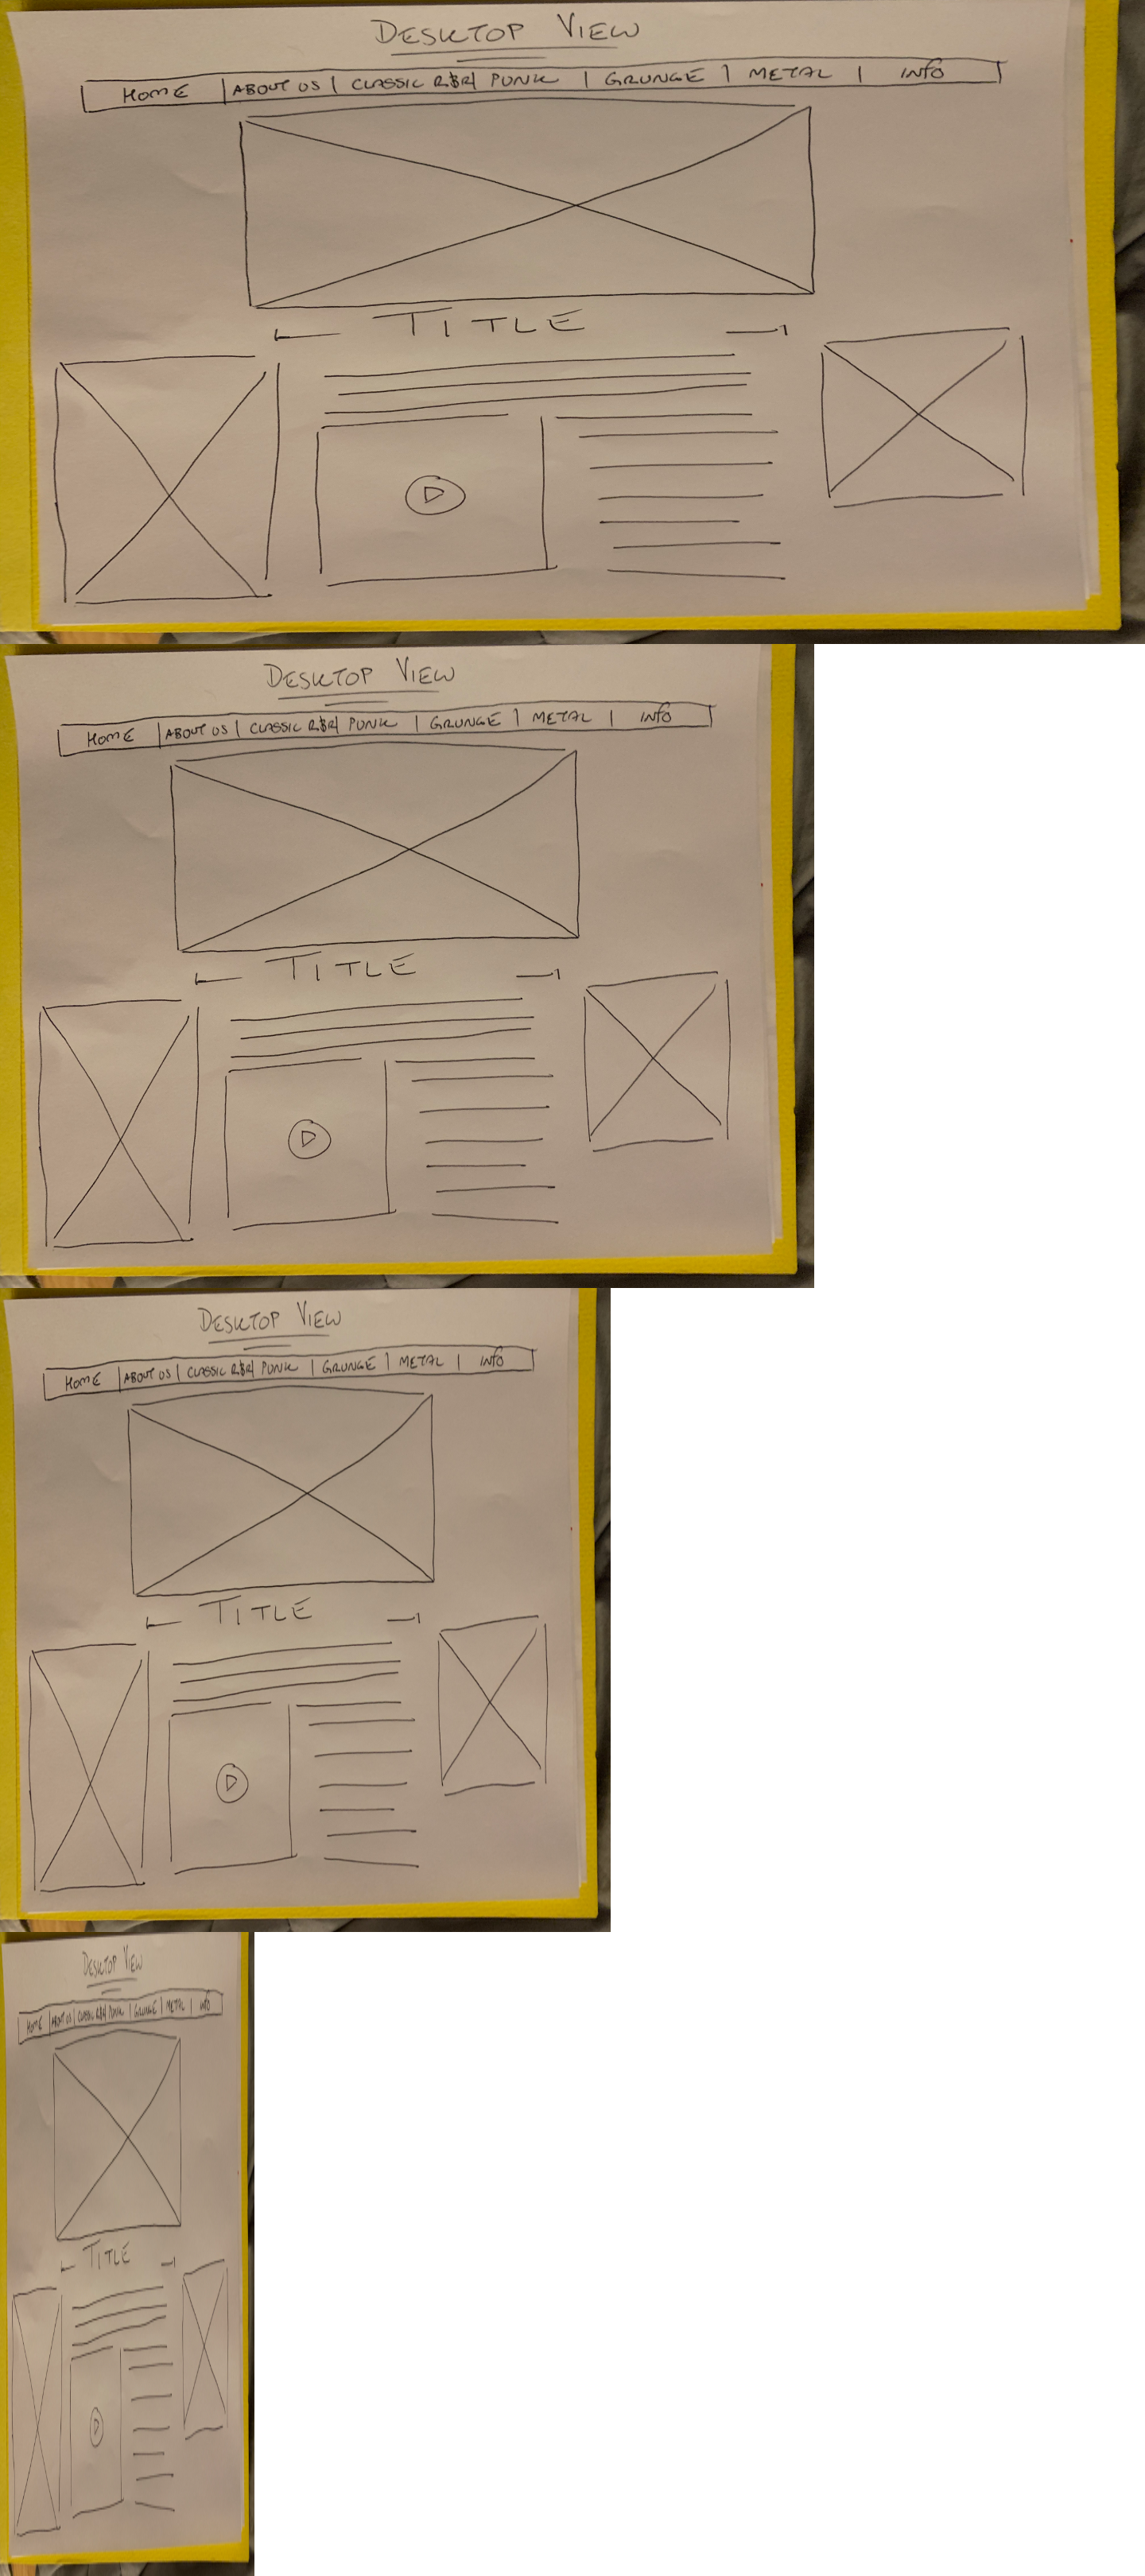 DESKTOP VIEW
HOME | ABOUT US | CLASSIC R&R | PUNK | GRUNGE | METAL | INFO
TITLE
DESKTOP VIEW
HOME | ABOUT US | CLASSIC R&R | PUNK | GRUNGE | METAL | INFO
TITLE
DESKTOP VIEW
HOME | ABOUT US | CLASSIC R&R | PUNK | GRUNGE | METAL | INFO
TITLE
DESKTOP VIEW
HOME | ABOUT US | CLASSIC R&R | PUNK | GRUNGE | METAL | INFO
TITLE